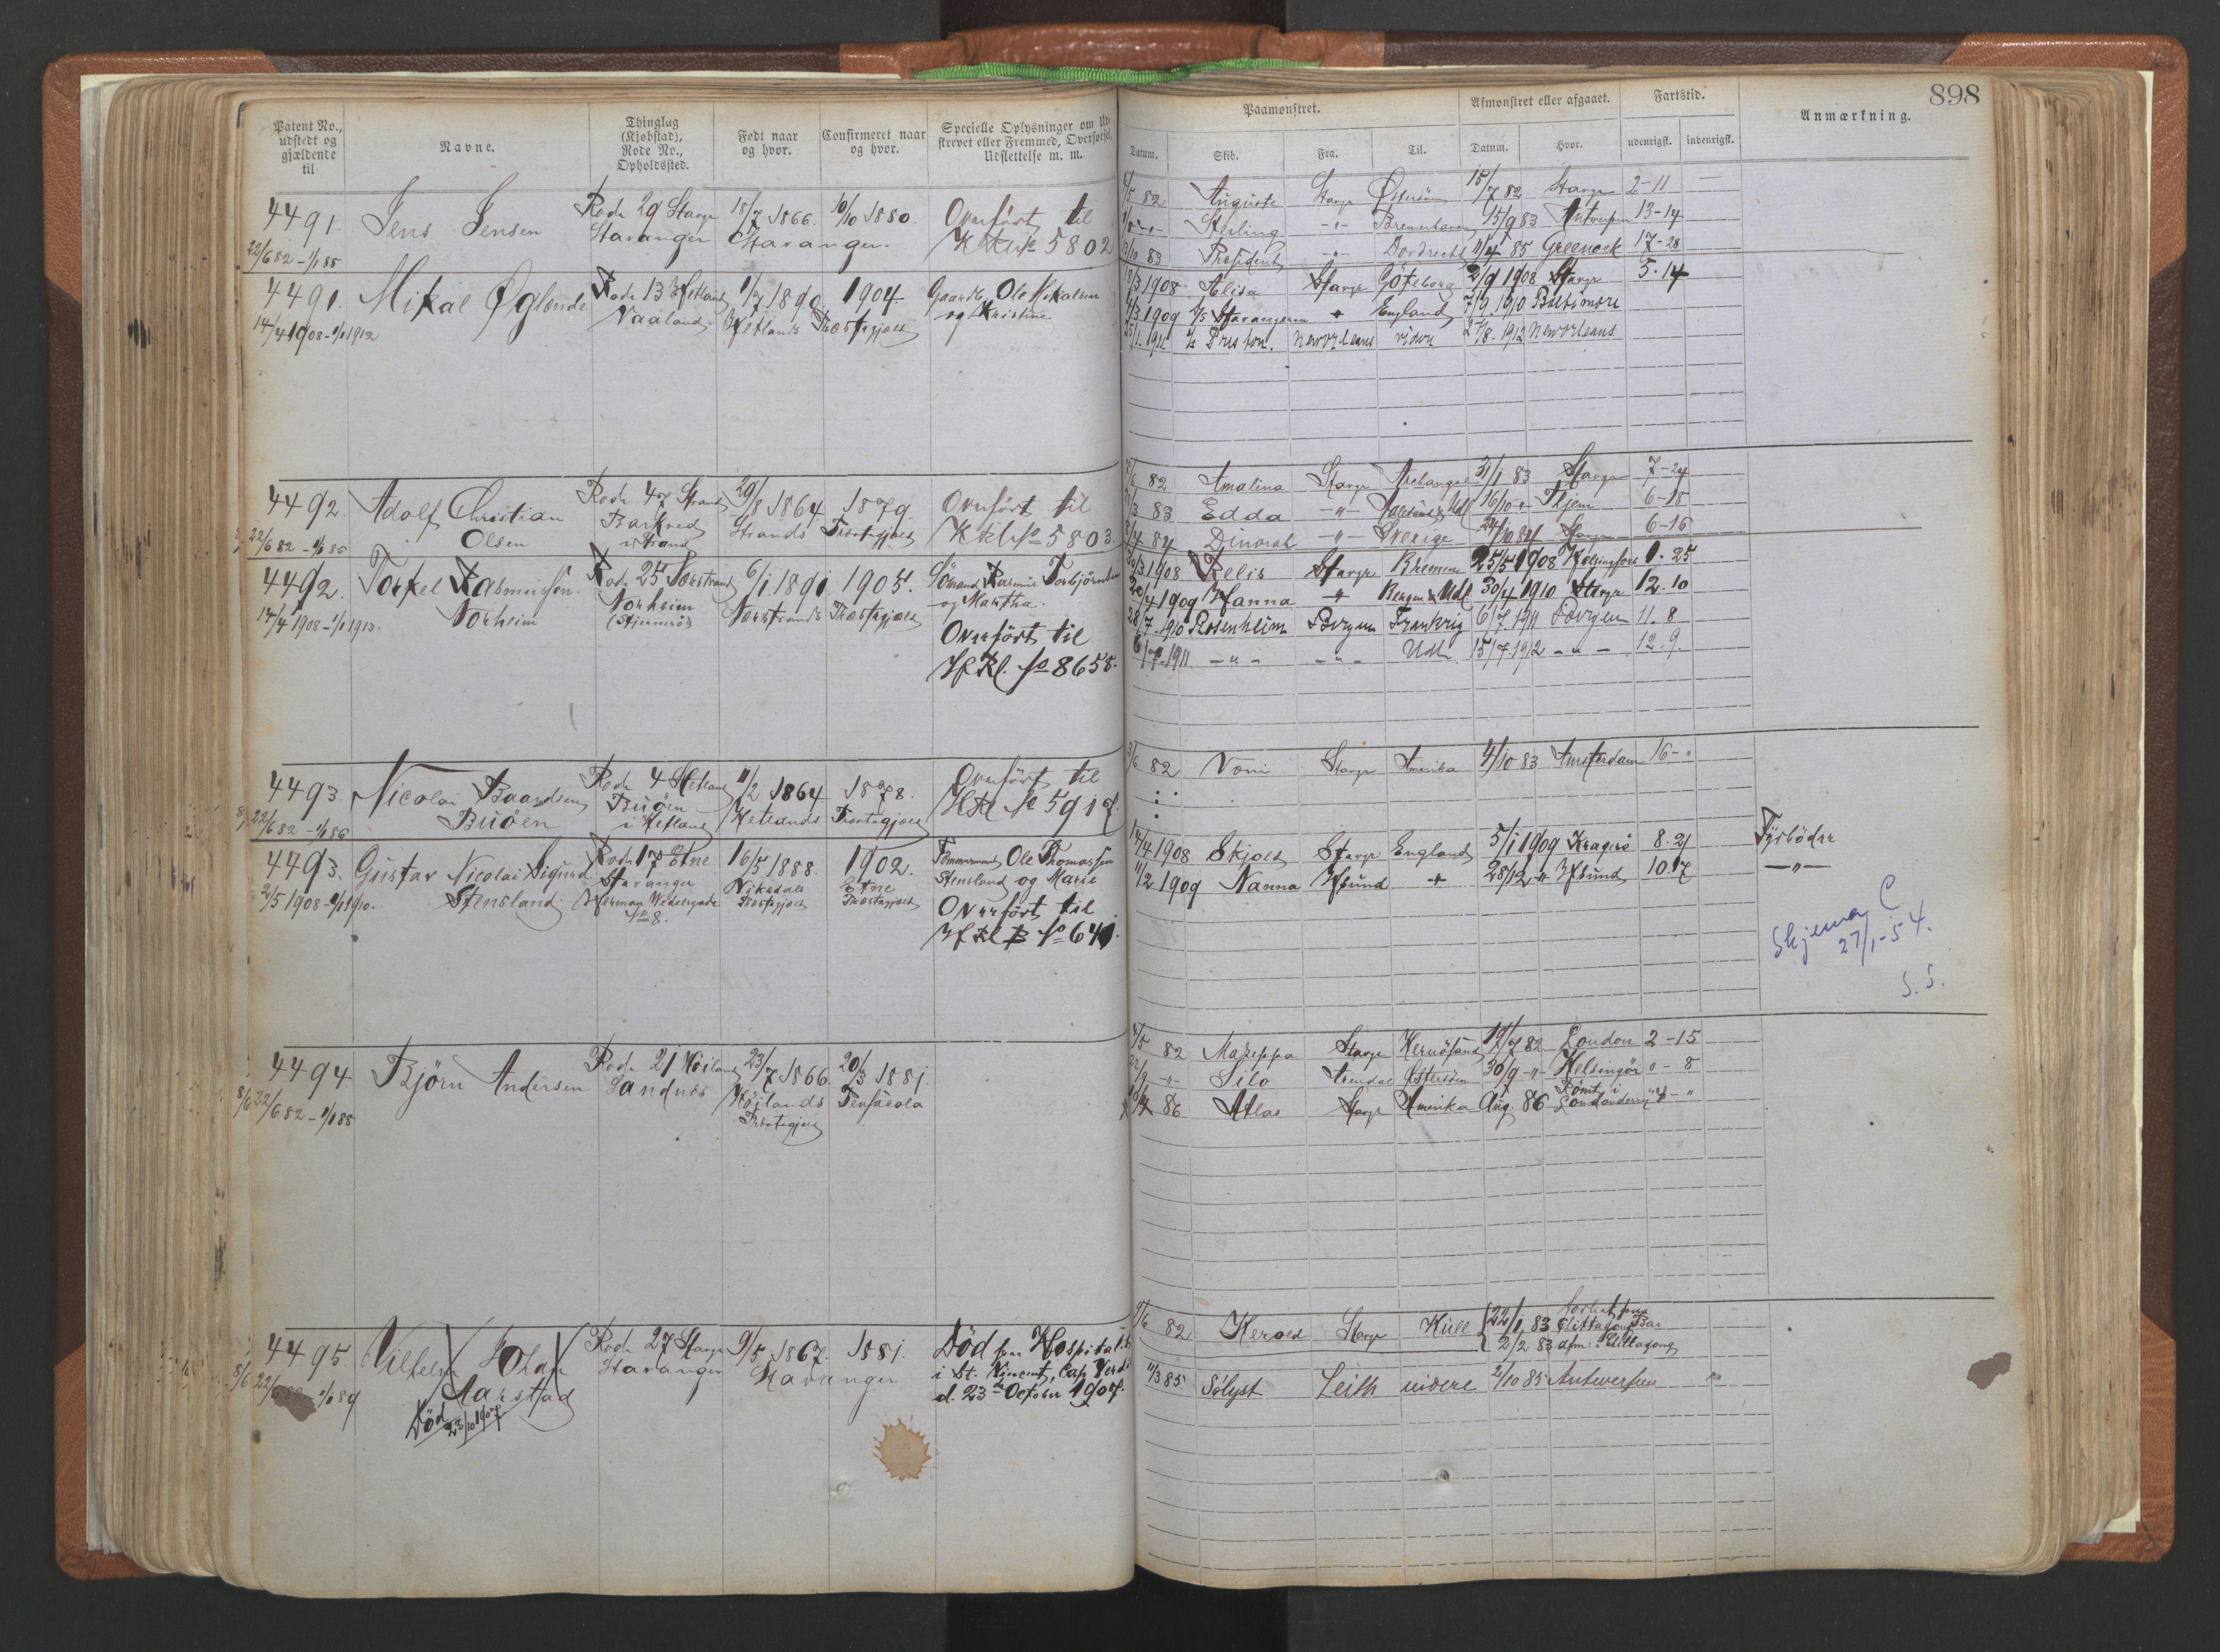 898
Patent No., udstedt og gjældende til
Navne.
Thinglag (Kjøbstad), Rode No., Opholdssted.
Født naar og hvor.
Confirmeret naar og hvor.
Specielle Oplysninger om Udstrevet eller Fremmed, Overførsel, Udslettelse m. m.
Paamønstret.
Afmønstret eller afgaaet.
Fartstid.
Anmærkning.
Datum. Skib. Fra. Til. Datum. Hvor. udenrigsk. indenrigsk.
4491. Jens Jensen Rode 29 Stavgr 18/7 1866. 10/10 1880. Overført til
22/6 82 - 1/1 85 Stavanger Stavanger. No 5802
82 Auguste Stavgr Østersøen 15/7 82 Stavgr 2-11
Sterling -"- Bremerhaven 15/9 83 Antwerpen 13-14
83 Præsident -"- Dordrecht 11/4 85 Greenock 17-28
4491. Mikal Øglende Rode 13 Hetland 1/7 1890. 1904. Gaardbr. Ole Mikalsen
14/4 1908 - 1/1 1912 Vaaland. Hetlands Præstegjæld og Kristine
1908 Alisa Stavgr Göteborg 2/9 1908 Stavgr 5-14
1909 Stavangeren " England 7/9 1910 Baltimore
1911 Preston. New Orleans videre 27/8 1912 New Orleans
4492. Adolf Christian Rode 47 Strand 29/8 1864 1879. Overført til
22/6 82 - 1/1 86 Olsen Barkved i Strand Strands Præstegjæld No 5803
82 Amalina Stavgr Archangel 31/1 83 Stavgr 7-24
83 Edda -"- Aalesund & Udl 16/10 -"- Hjem 6-18
84 Dinorah -"- Sverige 24/10 84 Stavgr 6-16
4492. Torkel Rasmussen Rode 25 Nærstrand 6/1 1891. 1905. Sömand Rasmus Torbjørnsen
14/4 1908 - 1/1 1913. Norheim Norheim (Stjernerø) Nærstrands Præstegjæld og Martha.
Overført til
No 8658.
1908 Relis Stavgr Bremen 25/5 1908 Helsingfors 1. 25
1909 Hanna " Bergen & Udl. 30/4 1910 Stavgr 12. 10
28/7 1910 Rosenheim Bergen Frankrig 6/7 1911 Bergen 11. 8
6/7 1911 -"- -"- Udl. 15/7 1912 -"- 12. 9.
4493. Nicolai Baardsen Rode 4 Hetland 11/2 1864 1878. Overført til
22/6 82 - 1/1 86 Buøen Buøen i Hetland Hetlands Præstegjæld No 5917.
82 Stavgr Amerika 4/10 83 Amsterdam 16-"
4493. Gustav Nicolai Sigurd Rode 17 Etne 16/5 1888. 1902. Tømmermand Ole Thomassen
2/5 1908 - 1/1 1910. Stensland. Stavanger Vikedals Præstegjæld Etne Præstegjæld Stensland og Marie
Herman Wedelsgade No 8. Overført til
B No 641.
14/4 1908 Skjold Stavgr England 5/1 1909 Kragerø 8. 21 Fyrbøder
11/2 1909 Nanna Hsund " 28/12 " Hsund 10. 17 -"-
Skjema C
27/1-54.
S. S.
4494. Bjørn Andersen Rode 21 Høiland 23/7 1866 20/3 1881.
22/6 82 - 1/1 85 Sandnes Højlands Præstegjæld Pensacola
82 Mazeppa Stavgr Hernösand 19/7 82 London 2-15
Silo Arendal Østersøen 30/9 -"- Helsingör 0-8
86 Atlas Stavgr Amerika Aug. 86 Rømt i Londonderry 4-"
4495. Vilhelm Johan Rode 27 Stavgr 9/5 1867. 1881. Død paa Hospitalet
Aarstad Stavanger Stavanger i St. Vincent, Cap Verde
Død 23/10 1907 d. 23de October 1907.
82 Herold Stavgr Hull 22/1 83 forhyrt paa
2/2 83 afm: i Chittagong
11/3 85 Sølyst Leith videre 2/10 85 Antwerpen "